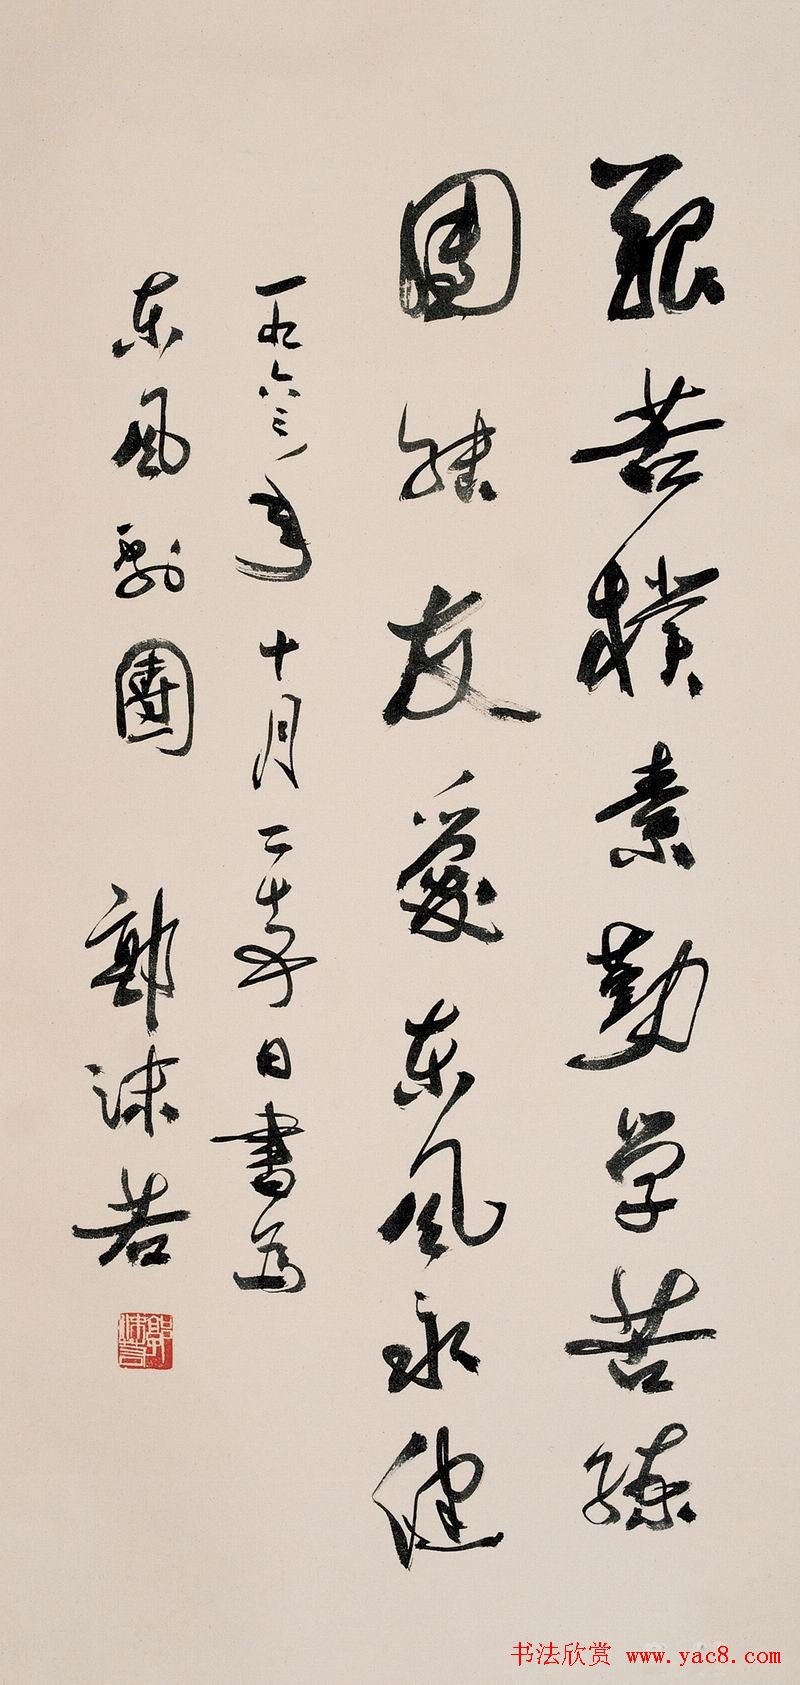 艰苦樸素勤学苦練
團结友爱东风永健
一九六三年十月二十七日書为
东风剧團 郭沫若
郭沫若
书法欣赏 www.yac8.com